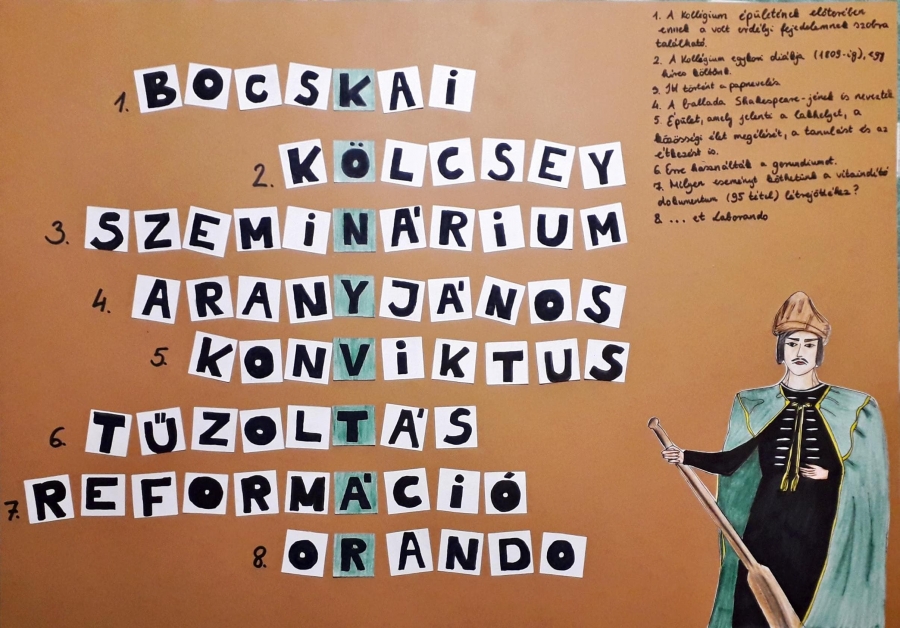 1. A Kollégium épületének előterében
ennek a volt erdélyi fejedelemnek szobra
található.
2. A Kollégium egykori diákja (1809-ig), egy
híres költőnk.
3. Itt történt a papnevelés
4. A ballada Shakespeare-jének is nevezték
5. Épület, amely jelenti a lakhelyet, a
közösségi élet megélését, a tanulást és az
étkezést is.
6. Erre használták a gerundiumot.
7. Milyen eseményt köthetünk a vitaindító
dokumentum (95 tétel) létrejöttéhez?
8. ... et Laborando
1. BOCSKAI
2. KÖLCSEY
3. SZEMINÁRIUM
4. ARANYJÁNOS
5. KONVIKTUS
6. TŰZOLTÁS
7. REFORMÁCIÓ
8. ORANDO